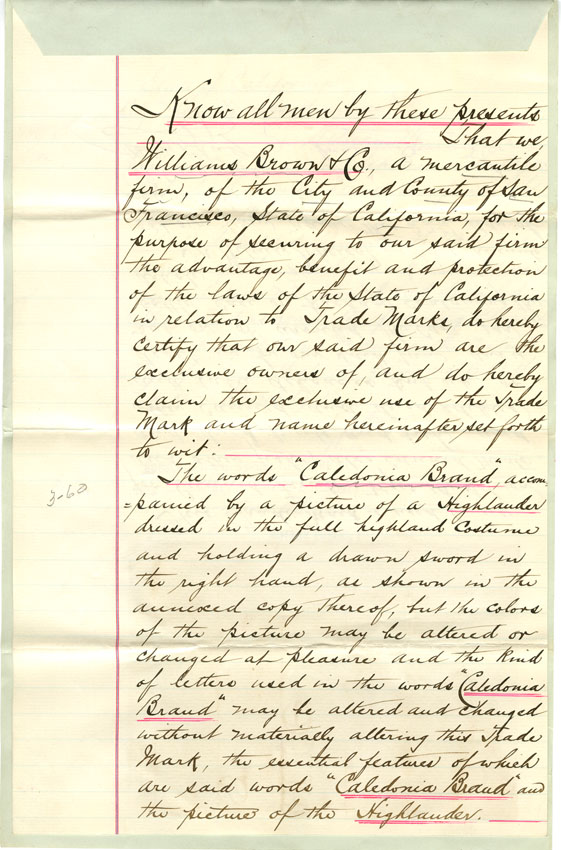 Know all men by these presents
That we,
Williams Brown & Co., a mercantile
firm, of the City and County of San
Francisco, State of California, for the
purpose of securing to our said firm
the advantage, benefit and protection
of the laws of the State of California
in relation to Trade Marks, do hereby
certify that our said firm are the
exclusive owners of, and do hereby
claim the exclusive use of the Trade
Mark and name hereinafter set forth
to wit:
The words "Caledonia Brand", accom-
=panied by a picture of a Highlander
dressed in the full highland costume
and holding a drawn sword in
the right hand, as shown in the
annexed copy thereof, but the colors
of the picture may be altered or
changed at pleasure and the kind
of letters used in the words "Caledonia
Brand" may be altered and changed
without materially altering this Trade
Mark, the essential features of which
are said words "Caledonia Brand" and
the picture of the Highlander.
3-60